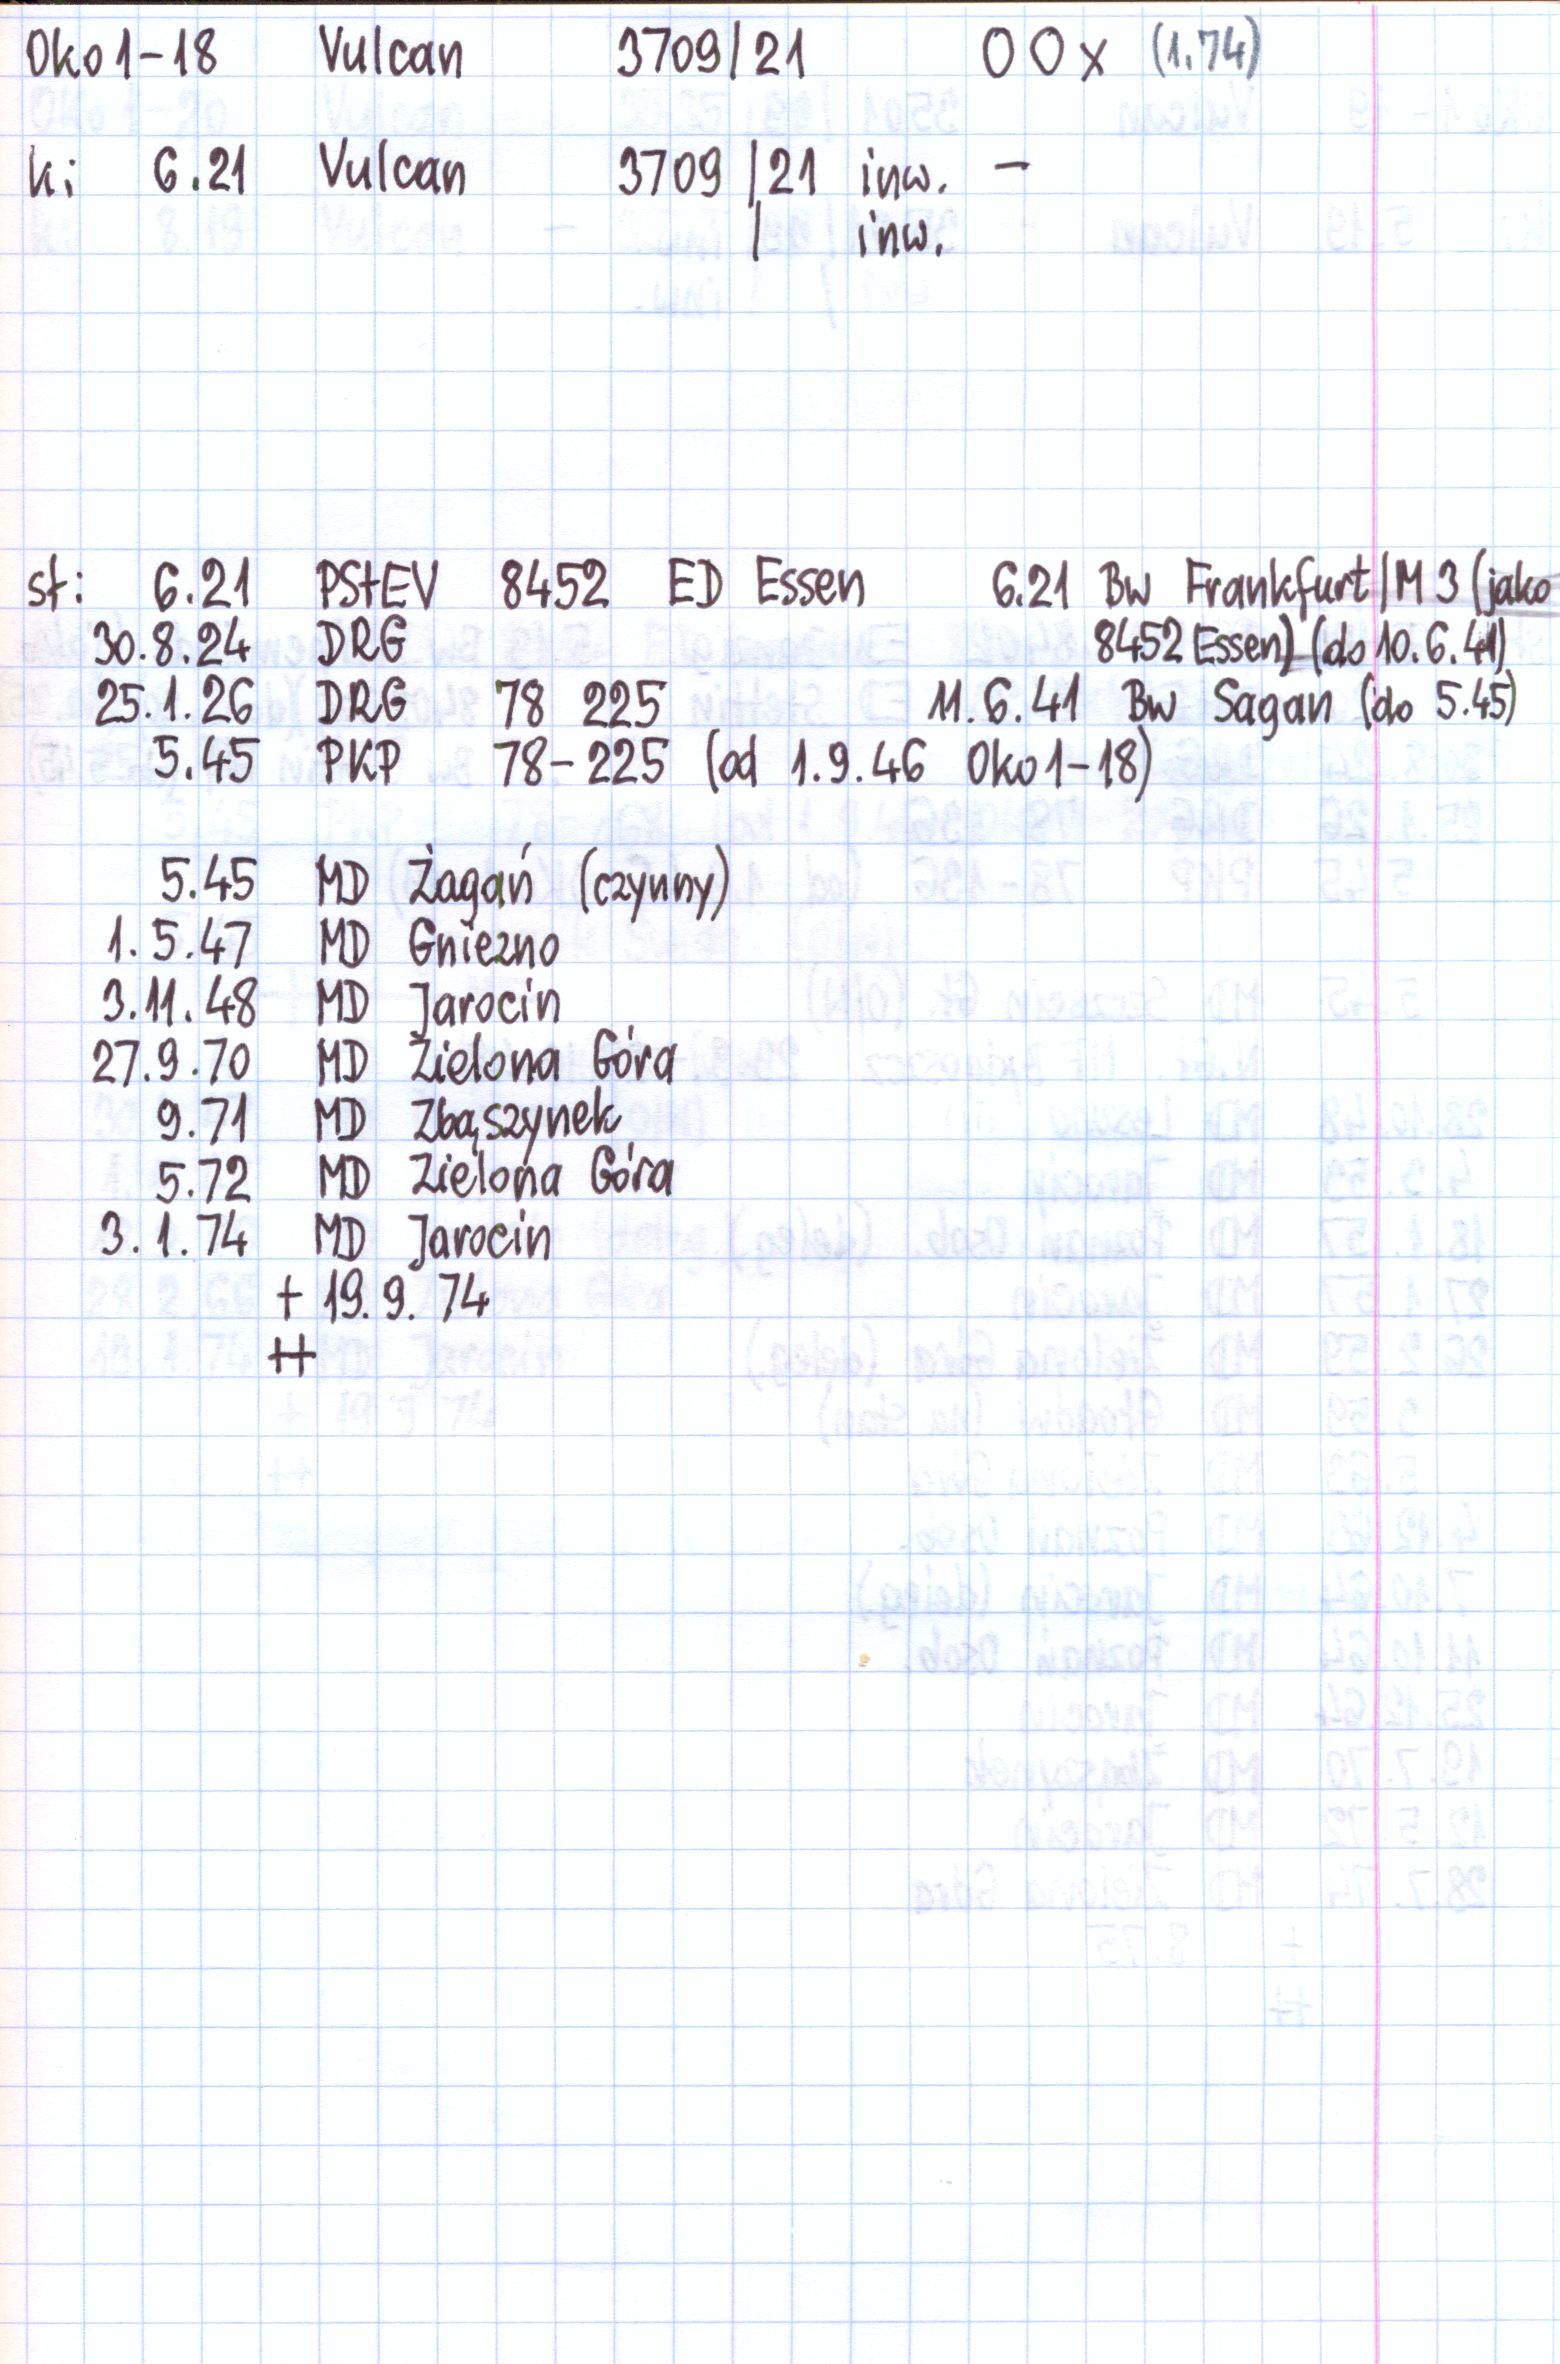 Oko1-18 Vulcan 3709/21 OOx (1.74)
ki 6.21 Vulcan 3709 /21 inw. -
/ inw.
st: 6.21 PStEV 8452 ED Essen 6.21 Bw Frankfurt/M 3 (jako
30.8.24 DRG 8452 Essen) (do 10.6.41)
25.1.26 DRG 78 225 11.6.41 Bw Sagan (do 5.45)
5.45 PKP 78-225 (od 1.9.46 Oko1-18)
5.45 MD Żagań (czynny)
1.5.47 MD Gniezno
3.11.48 MD Jarocin
27.9.70 MD Zielona Góra
9.71 MD Zbąszynek
5.72 MD Zielona Góra
3.1.74 MD Jarocin
+ 19.9.74
++